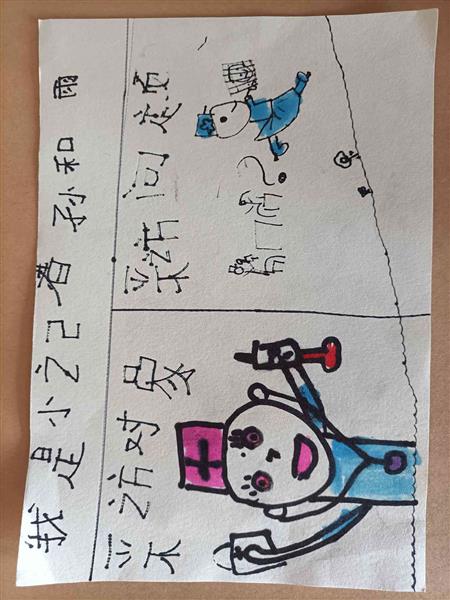 我是小记者 孙和雨
采访对象
采访问题